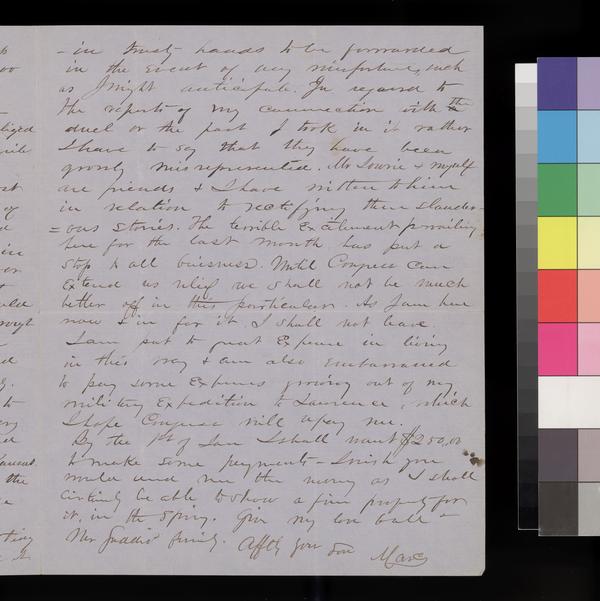 - in trusty hands to be forwarded
in the event of any misfortune, such
as I might anticipate. In regard to
the reports of my connection with the
duel or the part I took in it rather
I have to say that they have been
grossly misrepresented. Mr Lowrie & myself
are friends & I have written to him
in relation to rectifying these slander-
=ous stories. The terrible excitement prevailing
here for the last month has put a
stop to all buisness. Until Congress can
extend us relief we shall not be much
better off in this particular. As I am here
now & in for it I shall not leave.
I am put to great expense in living
in this way & am also embarrassed
to pay some expenses growing out of my
military expedition to Lawrence, which
I hope Congress will repay me.
By the 1st of Jan I shall want $250,00
to make some payments - I wish you
would send me the money as I shall
certainly be able to show a fine property for
it, in the Spring. Give my love to all -
Mr Gaddis family. Affly your Son Marc